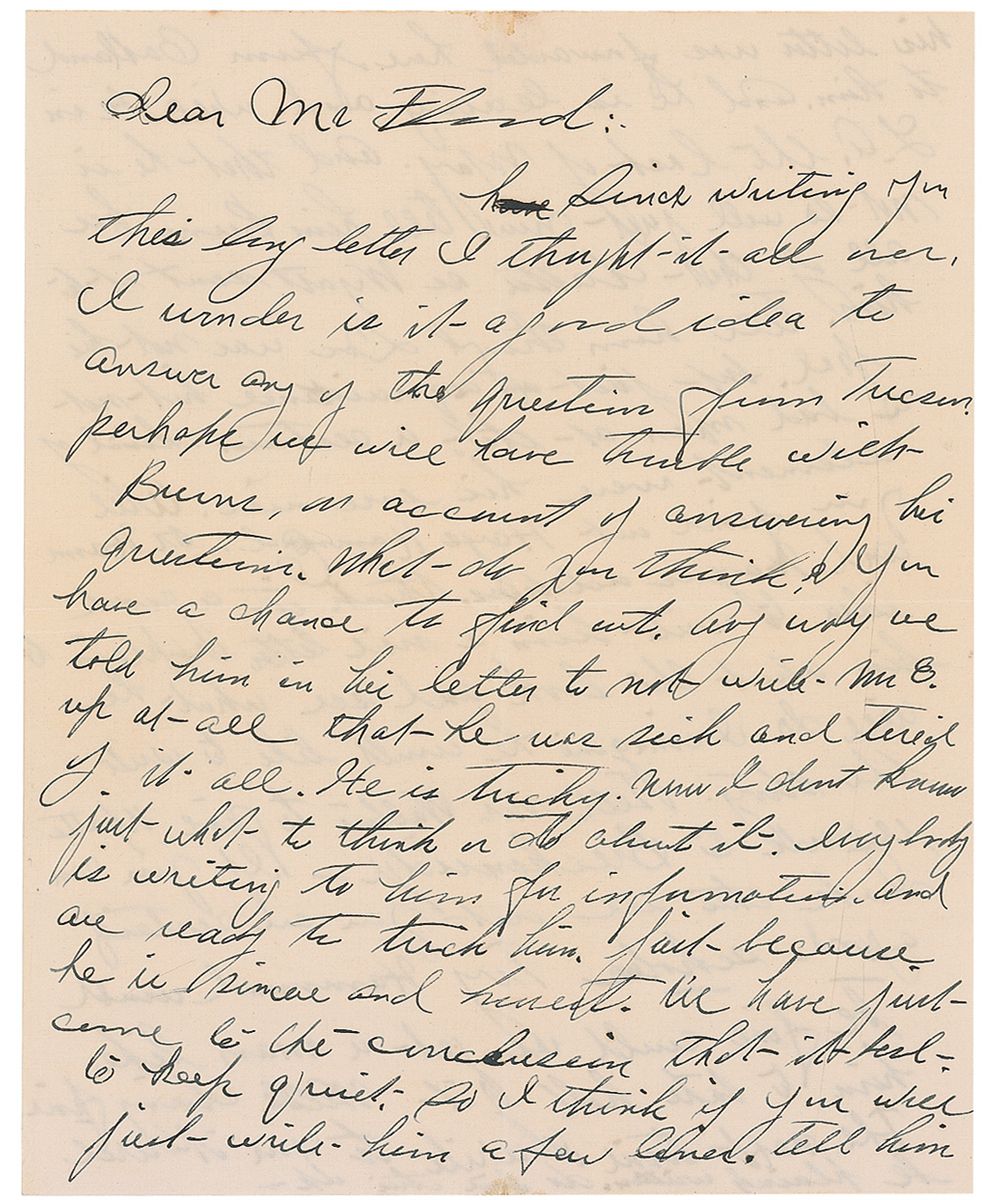 Dear Mr Flood:
Since writing you
this long letter I thought it all over.
I wonder is it a good idea to
answer any of the question from Tucson.
perhaps we will have trouble with
Burns, on account of answering his
question. What do you think, & you
have a chance to find out. Any way we
told him in his letter to not write Mr E.
up at all that he was sick and tired
of it all. He is tricky. Now I dont know
just what to think or do about it. Everybody
is writing to him for information. and
are ready to trick him. Just because
he is sincere and honest. We have just
come to the conclusion that it best
to keep quiet. So I think if you will
just write him a few lines. tell him